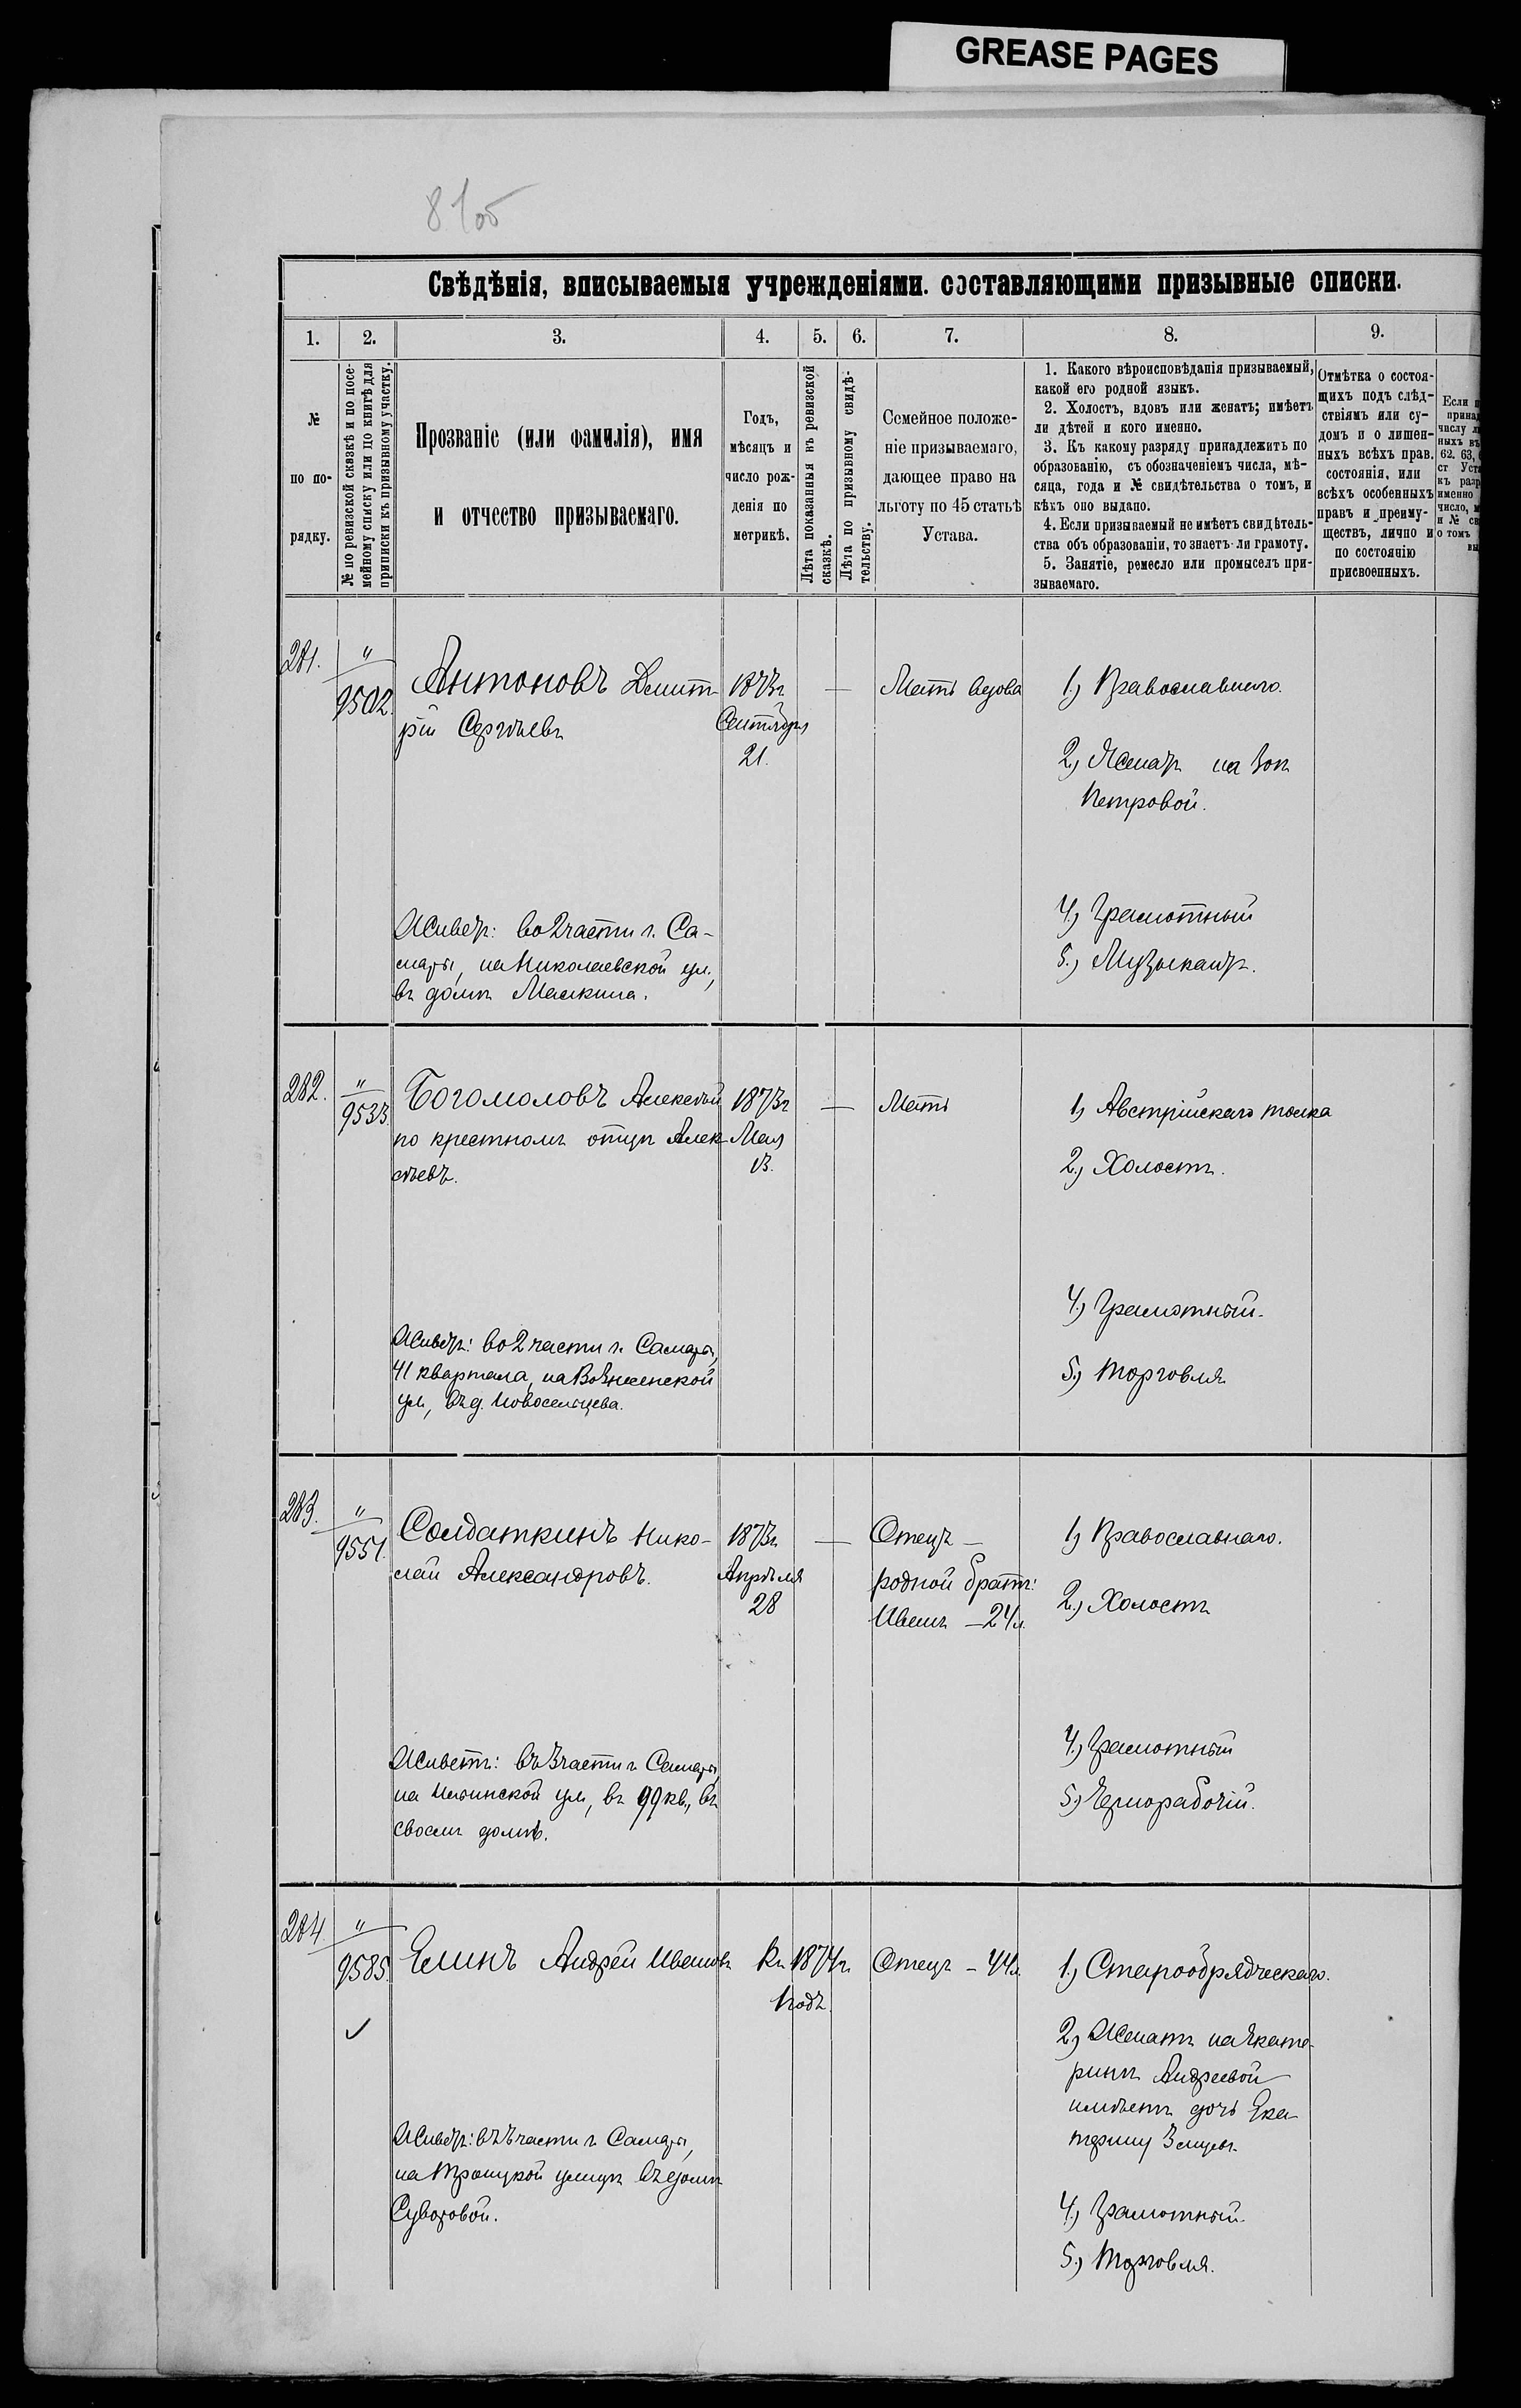 GREASE PAGES
81об
Свѣдѣнія, вписываемыя учрежденіями. составляющими призывные списки.
1. 2. 3. 4. 5. 6. 7. 8. 9.
№
по по-
рядку.
№ по ревизской сказкѣ и по посе-
мейному списку или по книгѣ для
приписки къ призывному участку.
Прозваніе (или фамилія), имя
и отчество призываемаго.
Годъ,
мѣсяцъ и
число рож-
денія по
метрикѣ.
Лѣта показанныя въ ревизской
сказкѣ.
Лѣта по призывному свидѣ-
тельству.
Семейное положе-
ніе призываемаго,
дающее право на
льготу по 45 статьѣ
Устава.
1. Какого вѣроисповѣданія призываемый,
какой его родной языкъ.
2. Холостъ, вдовъ или женатъ; имѣетъ
ли дѣтей и кого именно.
3. Къ какому разряду принадлежитъ по
образованію, съ обозначеніемъ числа, мѣ-
сяца, года и № свидѣтельства о томъ, и
кѣхъ оно выдано.
4. Если призываемый не имѣетъ свидѣтель-
ства объ образованіи, то знаетъ-ли грамоту.
5. Занятіе, ремесло или промыселъ при-
зываемаго.
Отмѣтка о состоя-
щихъ подъ слѣд-
ствіямъ или су-
домъ и о лишен-
ныхъ всѣхъ прав.
состоянія, или
всѣхъ особенныхъ
правъ и преиму-
ществъ, лично и
по состоянію
присвоенныхъ.
Если
числу
62. 63,
именно
число,
и №
о томъ
281.
"
9502.
Антоновъ Дмит-
рій Сергѣевъ
1873г
Сентября
21.
—
Мать вдова
1.) Православнаго.
2.) Женатъ на Зоѣ
Петровой.
4.) Грамотный
5.) Музыкантъ.
Живетъ: во 2 части г. Са-
мары, на Николаевской ул.,
въ домѣ Маскина.
282.
"
9533.
Богомоловъ Алексѣй
по крестномъ отцѣ Алек-
сѣевъ.
1873г
Мая
13.
—
Мать
1) Австрійскаго толка
2.) Холостъ.
4.) Грамотный.
5.) Торговля
Живетъ: во 2 части г. Самары,
41 квартала, на Вознесенской
ул., въ д. Новосельцева.
283.
"
9551.
Солдаткинъ Нико-
лай Александровъ.
1873г.
Апрѣля
28
—
Отецъ —
родной братъ:
Иванъ — 24л.
1) Православнаго.
2.) Холостъ
4.) Грамотный
5.) Чернорабочій.
Живетъ: въ 3 части г. Самары,
на Ильинской ул., въ 99 кв., въ
своемъ домѣ.
284.
"
9585.
Елинъ Андрей Ивановъ
Къ 1874г.
Отецъ — 44л.
1.) Старообрядческаго.
2.) Женатъ на Екате-
ринѣ Андреевой
имѣетъ дочь Ека-
терину 3 мѣсяц.
4.) Грамотный.
5.) Торговля.
Живетъ: въ части г. Самары,
на Троицкой улицѣ въ домѣ
Суворовой.